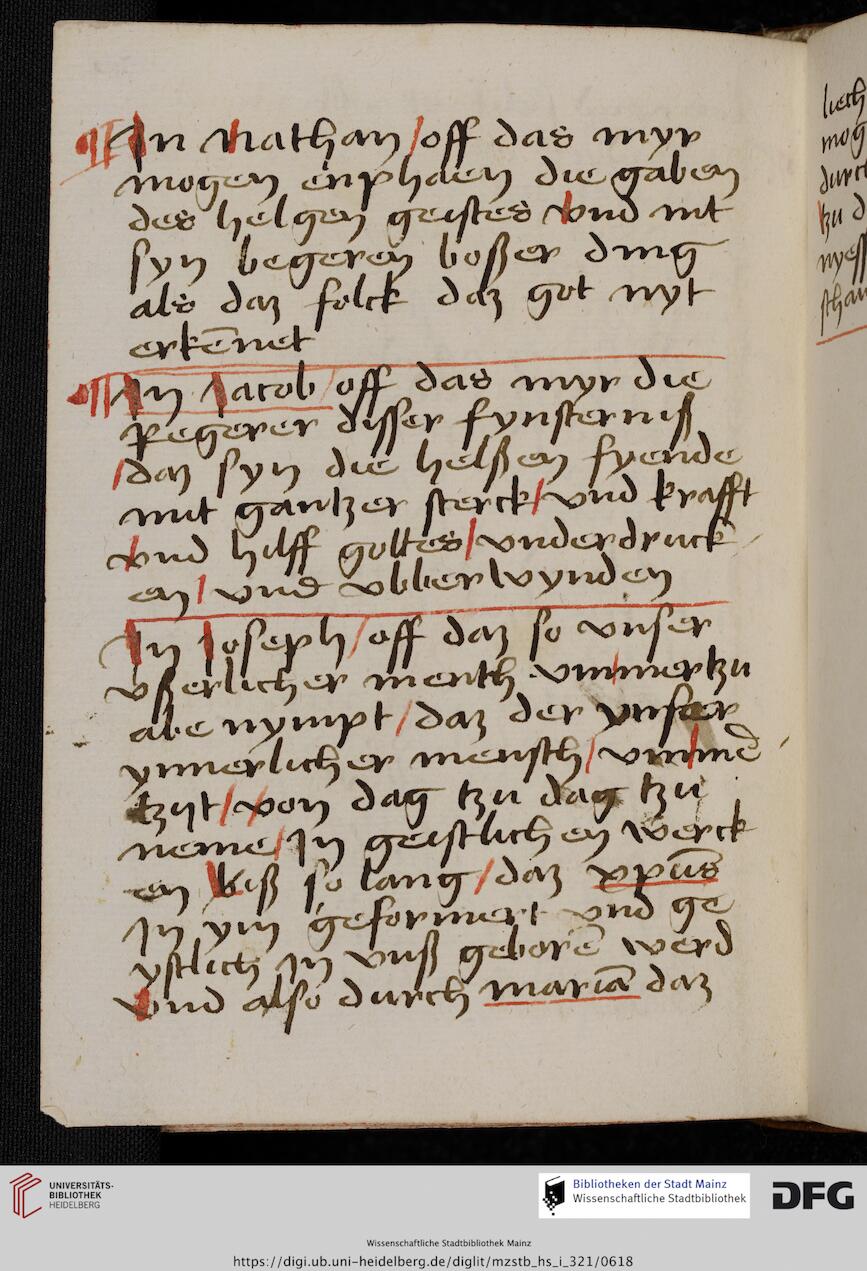 ¶ In Nathan / off das myr
mogen enphaen die gaben
des helgen geistes vnd nit
syn begeren boßer ding
als daz folck daz got nyt
erkēnet
¶ In Jacob / off das myr die
Regerer disser fynsterniß
/ daz syn die helßen fyende
mit gantzer sterck / vnd krafft
vnd hilff gottes / vnderdruck
en / vnd vbberwynden
In Joseph / off daz so vnser
vßerlicher mentsch vmmertzu
abe nympt / daz der vnser
ynnerlicher mensch / vmmē
tzijt / von dag tzu dag tzu
neme / In geistlichen werck
en biß so lang / daz xpūs
In ym geformert vnd ge
ystlich in vnß geborē werd
vnd also durch mariā daz
liech
mog
durch
tzu d
nyess
sthan
UNIVERSITÄTS-
BIBLIOTHEK
HEIDELBERG
Bibliotheken der Stadt Mainz
Wissenschaftliche Stadtbibliothek
DFG
Wissenschaftliche Stadtbibliothek Mainz
https://digi.ub.uni-heidelberg.de/diglit/mzstb_hs_i_321/0618